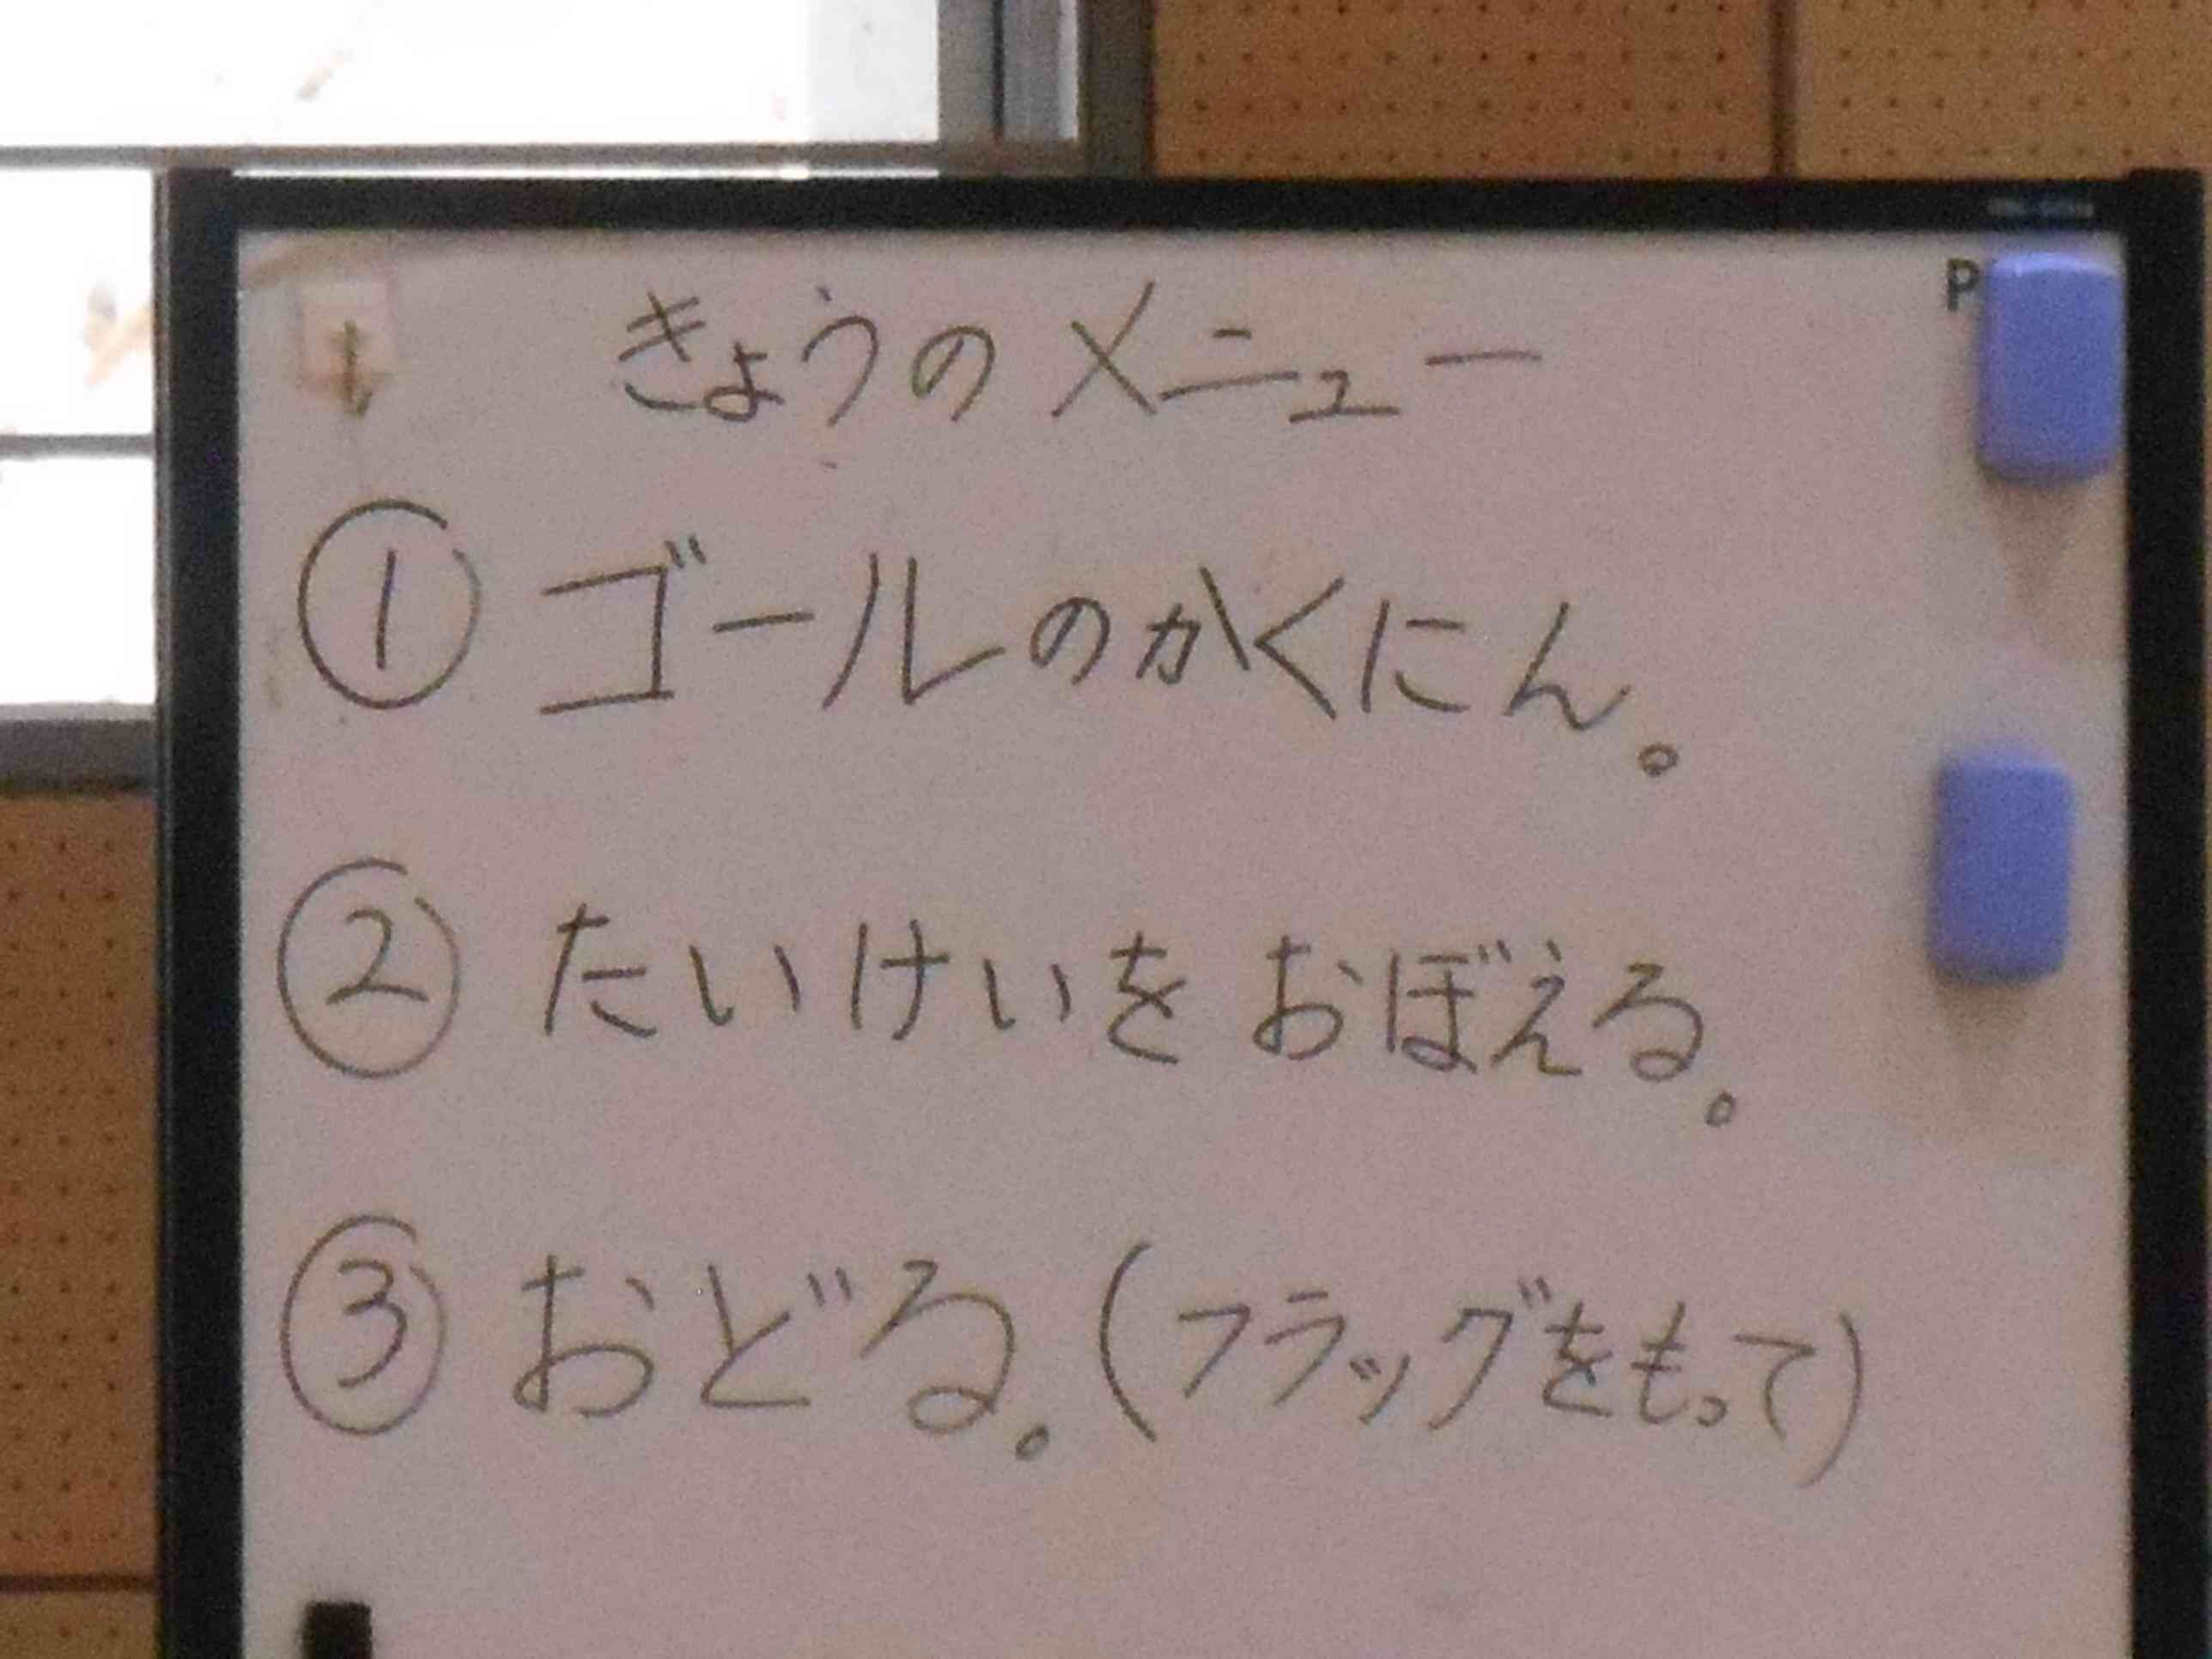 きょうのメニュー
P
① ゴールのかくにん。
② たいけいを おぼえる。
③ おどる。(フラッグをもって)